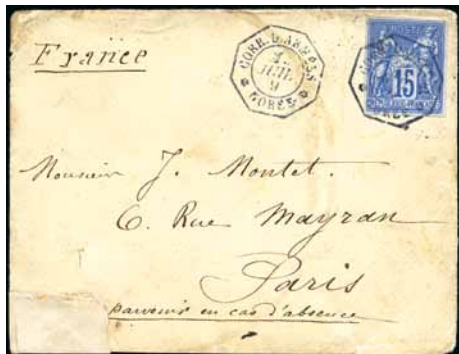 France
CORR. D. ARMÉES
JUIL
9
GORÉE
15
Monsieur J. Montet.
6. Rue Mayran
Paris
parvenir en cas d'absence